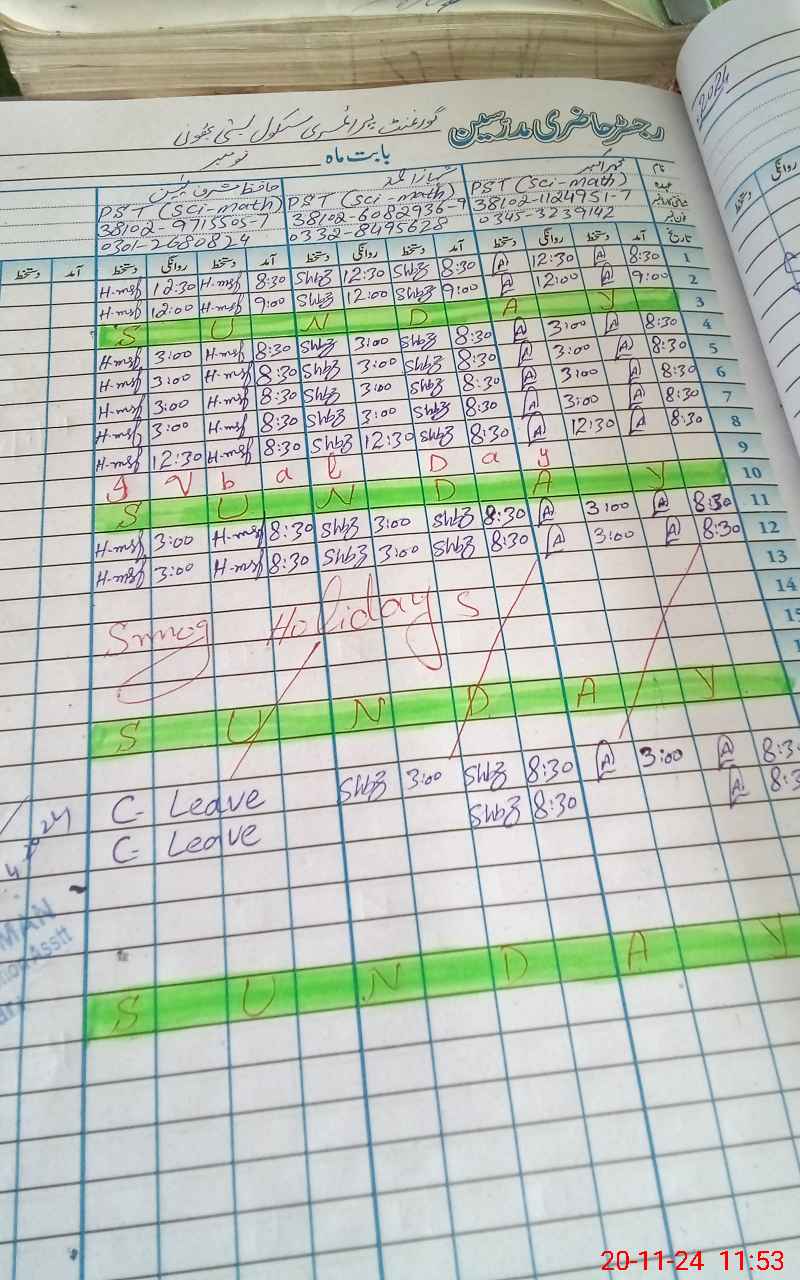 2024
رجسٹر حاضری مدرسین گورنمنٹ پرائمری سکول بستی
بابت ماہ نومبر
نام
عہدہ PST (Sci-math) PST (Sci-math) PST (Sci-math)
38102-1124951-7 38102-6082936-9 38102-9715505-7
فون نمبر 0345-3239142 0332-8495628 0301-2680824
تاریخ آمد دستخط روانگی دستخط آمد دستخط روانگی دستخط آمد دستخط روانگی دستخط آمد دستخط
1 8:30 A 12:30 A 8:30 Shbz 12:30 Shbz 8:30 H-msf 12:30 H-msf
2 9:00 A 12:00 A 9:00 Shbz 12:00 Shbz 9:00 H-msf 12:00 H-msf
3 S U N D A Y
4 8:30 A 3:00 A 8:30 Shbz 3:00 Shbz 8:30 H-msf 3:00 H-msf
5 8:30 A 3:00 A 8:30 Shbz 3:00 Shbz 8:30 H-msf 3:00 H-msf
6 8:30 A 3:00 A 8:30 Shbz 3:00 Shbz 8:30 H-msf 3:00 H-msf
7 8:30 A 3:00 A 8:30 Shbz 3:00 Shbz 8:30 H-msf 3:00 H-msf
8 8:30 A 12:30 A 8:30 Shbz 12:30 Shbz 8:30 H-msf 12:30 H-msf
9 I q b a l D a y
10 S U N D A Y
11 8:30 A 3:00 A 8:30 Shbz 3:00 Shbz 8:30 H-msf 3:00 H-msf
12 8:30 A 3:00 A 8:30 Shbz 3:00 Shbz 8:30 H-msf 3:00 H-msf
13
14
15
Smog Holidays
S U N D A Y
C- Leave Shbz 3:00 Shbz 8:30 A 3:00 A 8:3
C- Leave Shbz 8:30 A 8:3
S U N D A Y
MAN
Asstt
20-11-24 11:53